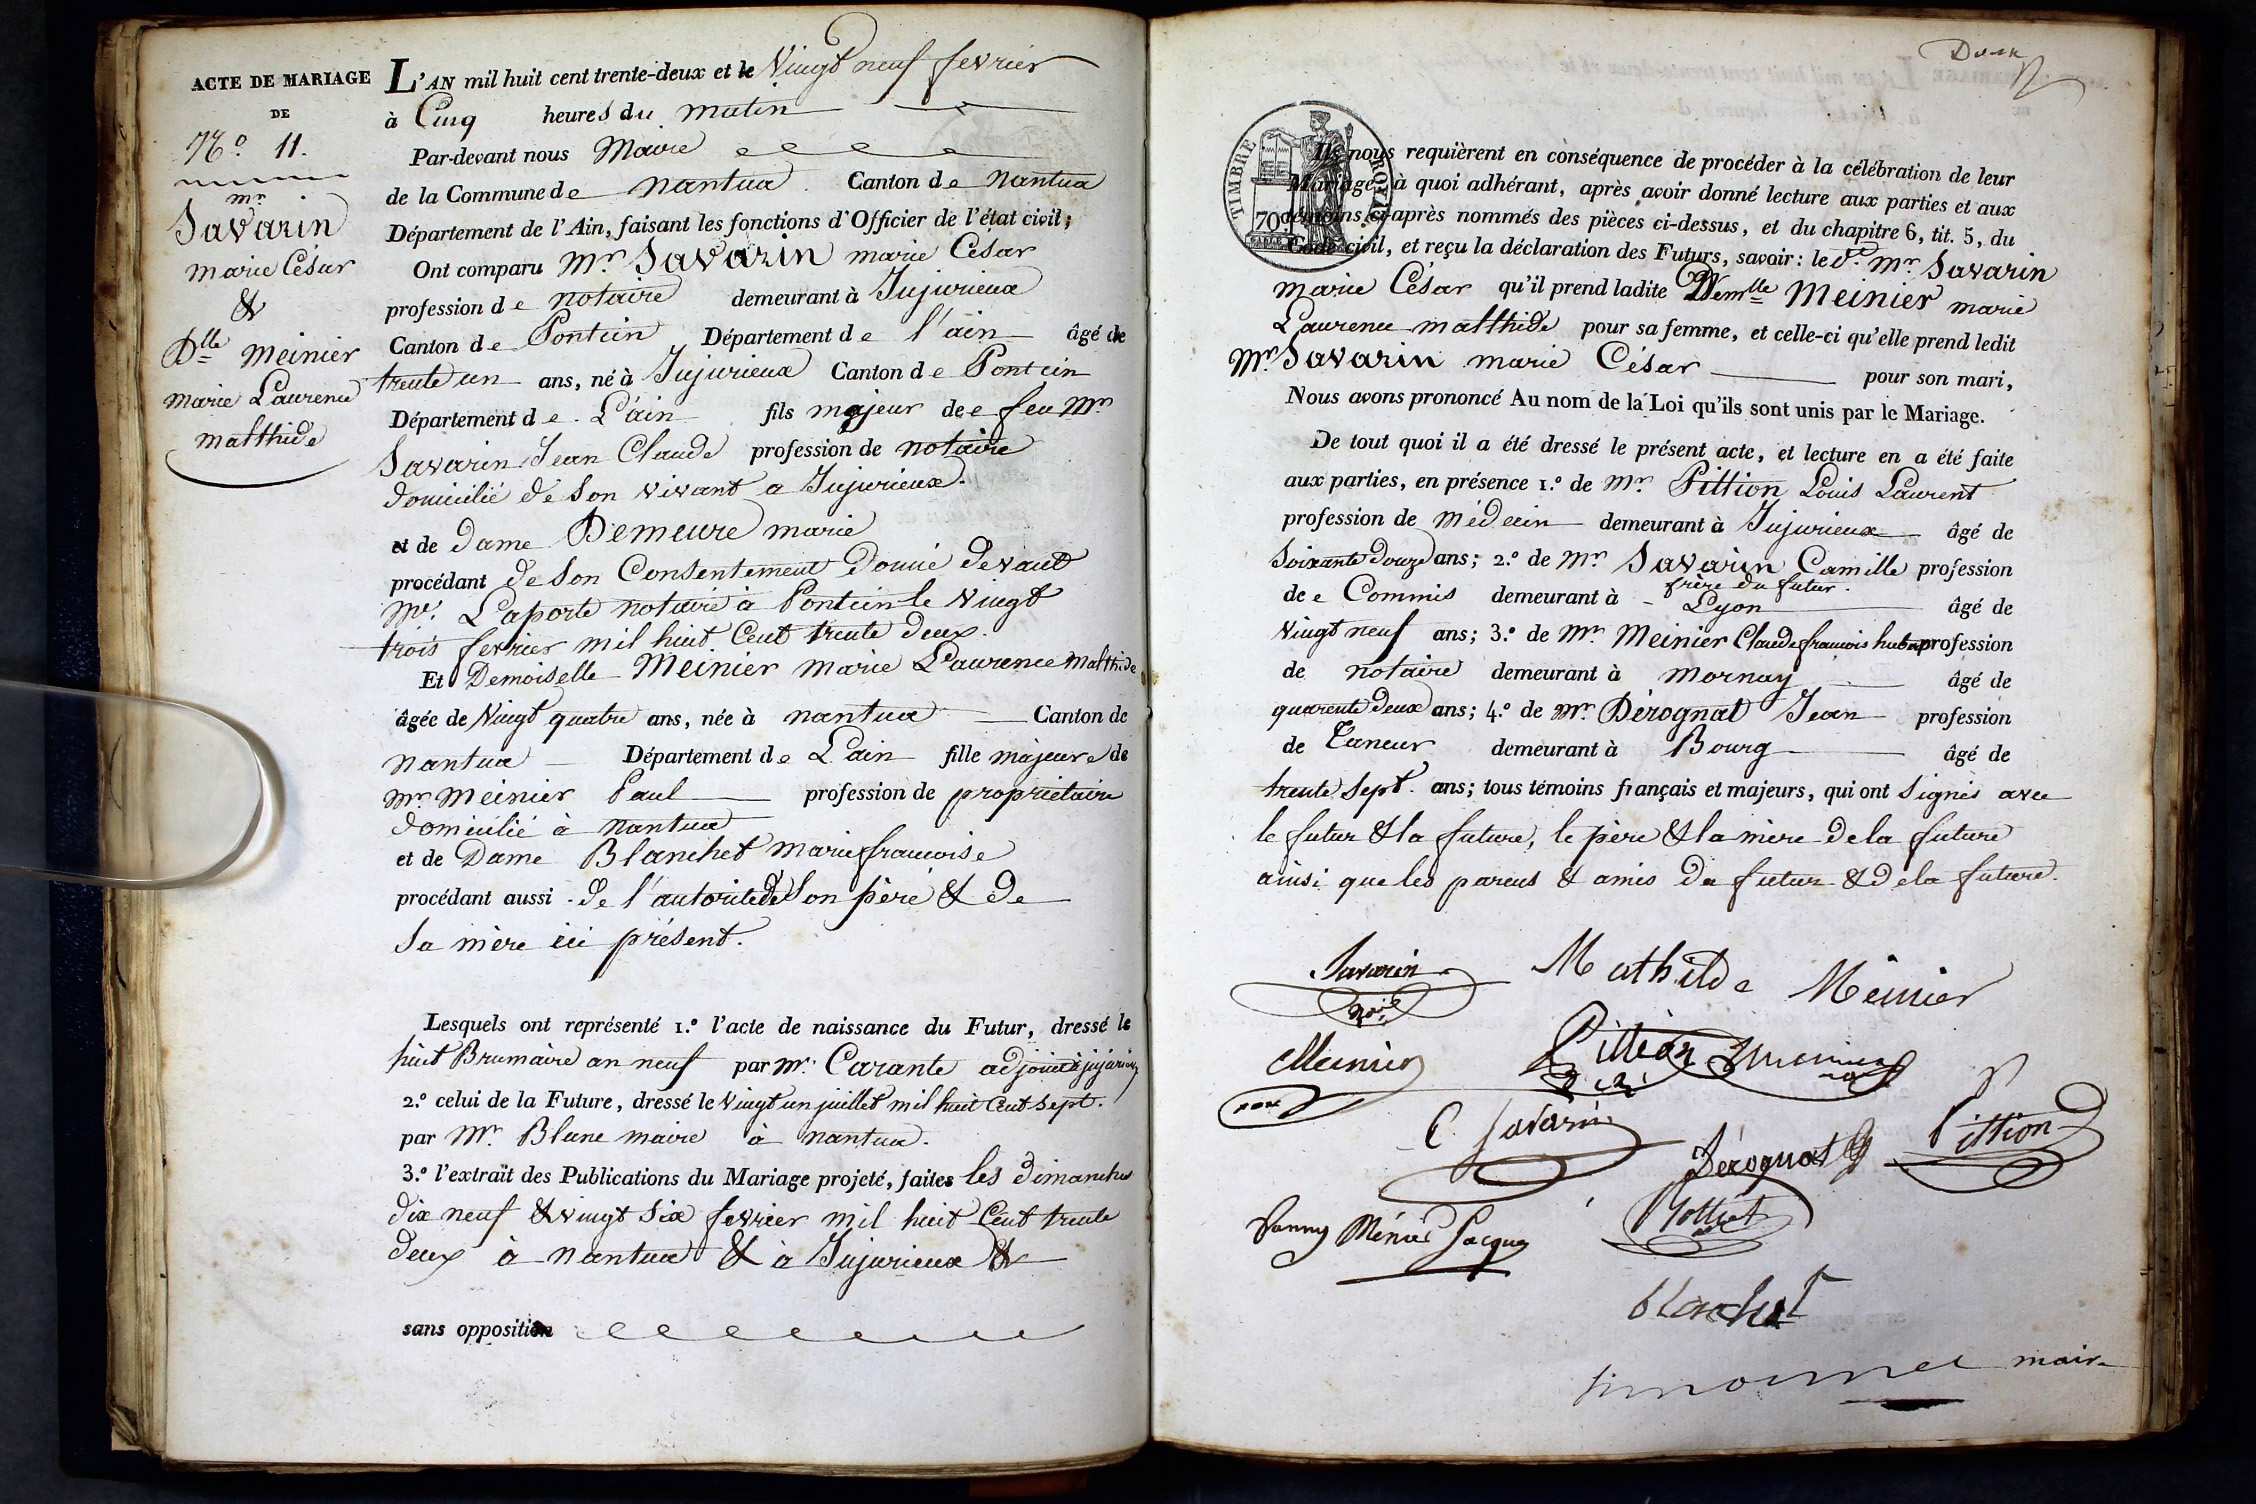 ACTE DE MARIAGE
DE
N.º 11.
mr
Savarin
marie César
&
Dlle meinier
marie Laurence
matthide
L'AN mil huit cent trente-deux et le Vingt neuf fevrier
à Cinq heures du matin
Par-devant nous Maire
de la Commune de nantua. Canton de nantua
Département de l'Ain, faisant les fonctions d'Officier de l'état civil;
Ont comparu Mr Savarin marie César
profession de notaire demeurant à Jujurieux
Canton de Pontcin Département de l'ain âgé de
trente un ans, né à Jujurieux Canton de Pontcin
Département de L'ain fils majeur de feu Mr
Savarin Jean Claude profession de notaire
domicilié de son vivant a Jujurieux.
et de dame Demeure marie
procédant de son Consentement donné devant
Me. Laporte notaire à Pontcin le vingt
trois fevrier mil huit Cent trente deux.
Et Demoiselle Meinier marie Laurence matthide
âgée de Vingt quatre ans, née à nantua Canton de
nantua Département de L'ain fille majeure de
mr meinier Paul profession de propriétaire
domicilié à nantua
et de Dame Blanchet marie francoise
procédant aussi de l'autorité de son père & de
sa mère ici présent.
Lesquels ont représenté 1.º l'acte de naissance du Futur, dressé le
huit Brumaire an neuf par mr. Carante adjoint à jujurieux
2.º celui de la Future, dressé le vingt un juillet mil huit Cent sept.
par Mr. Blane maire à nantua.
3.º l'extrait des Publications du Mariage projeté, faites les dimanches
dix neuf & vingt six fevrier mil huit Cent trente
deux à nantua & à Jujurieux &
sans opposition
TIMBRE ROYAL
70
Ils nous requièrent en conséquence de procéder à la célébration de leur
Mariage, à quoi adhérant, après avoir donné lecture aux parties et aux
témoins ci-après nommés des pièces ci-dessus, et du chapitre 6, tit. 5, du
Code civil, et reçu la déclaration des Futurs, savoir: le d.t mr Savarin
marie César qu'il prend ladite Demlle Meinier marie
Laurence matthide pour sa femme, et celle-ci qu'elle prend ledit
Mr Savarin marie César pour son mari,
Nous avons prononcé Au nom de la Loi qu'ils sont unis par le Mariage.
De tout quoi il a été dressé le présent acte, et lecture en a été faite
aux parties, en présence 1.º de Mr. Pittion Louis Laurent
profession de médecin demeurant à Jujurieux âgé de
soixante douze ans; 2.º de Mr. Savarin Camille profession
frère du futur.
de Commis demeurant à Lyon âgé de
vingt neuf ans; 3.º de Mr Meinier Claude francois profession
de notaire demeurant à mornay âgé de
quarente deux ans; 4.º de mr. Dérognat Jean profession
de Taneur demeurant à Bourg âgé de
trente sept. ans; tous témoins français et majeurs, qui ont signés avec
le futur & la future, le père & la mère de la future
ainsi que les parens & amis du futur & de la future.
Savarin
Mathilde Meinier
Meinier
Pittion
C. Savarin
Dérognat
Pittion
Fanny Ménier Jacquey
Blanchet
maire